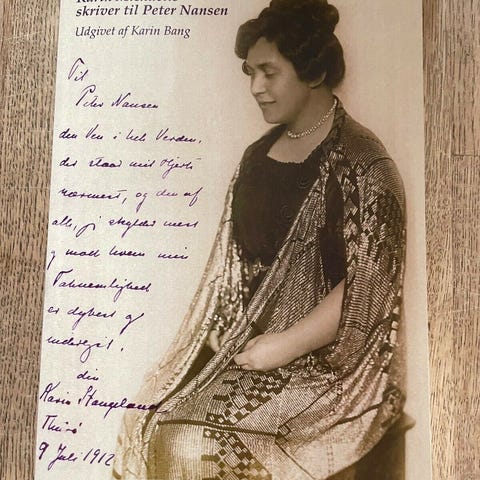 skriver til Peter Nansen
Udgivet af Karin Bang
Til
Peter Nansen
den Ven i hele Verden,
der staar mit Hjerte
nærmest, og den af
alle, jeg skylder mest
og mod hvem min
Taknemlighed
er dybest og
inderligst.
din
Karin Stangeland
Thurø
9 Juli 1912